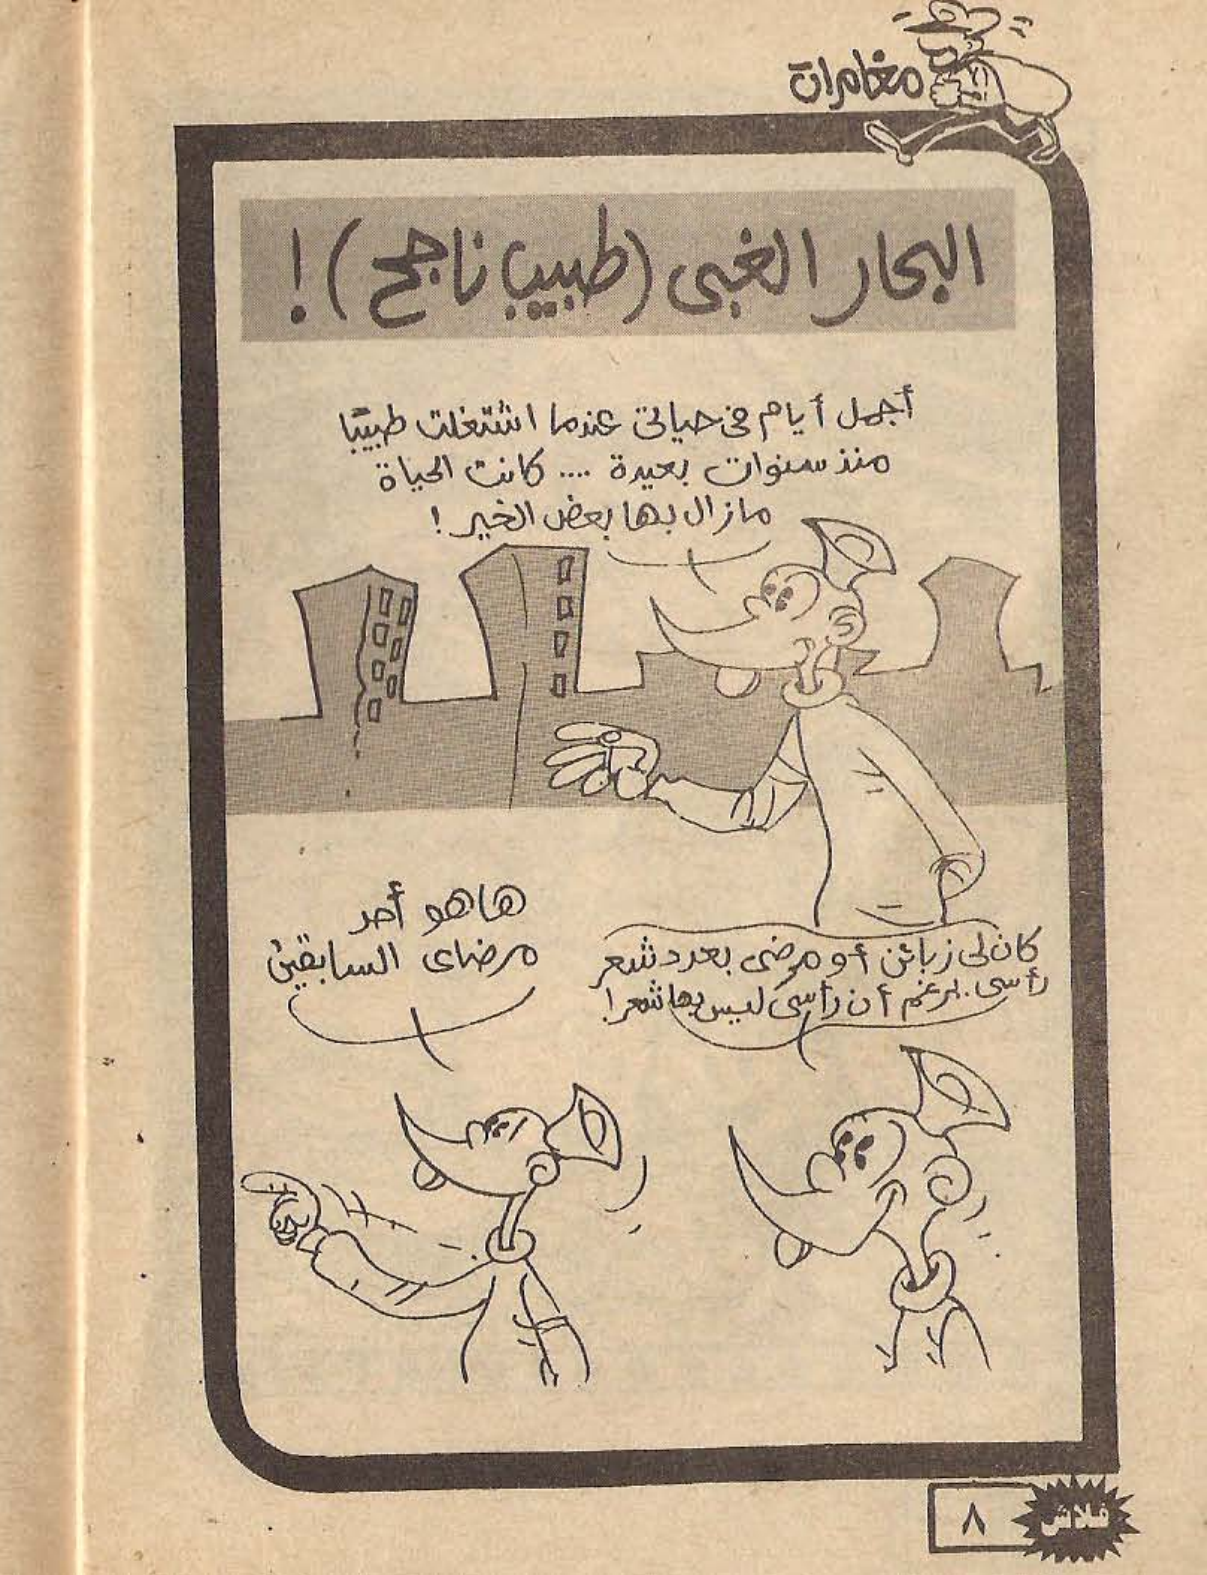 مغامرات
البحار الغبى (طبيب ناجح)!
أجمل أيام فى حياتى عندما اشتغلت طبيبًا
منذ سنوات بعيدة .... كانت الحياة
مازال بها بعض الخير!
كان لى زبائن أو مرضى بعدد شعر
رأسى.. برغم أن رأسى ليس بها شعر!
هاهو أحد
مرضاى السابقين
فلاش
٨